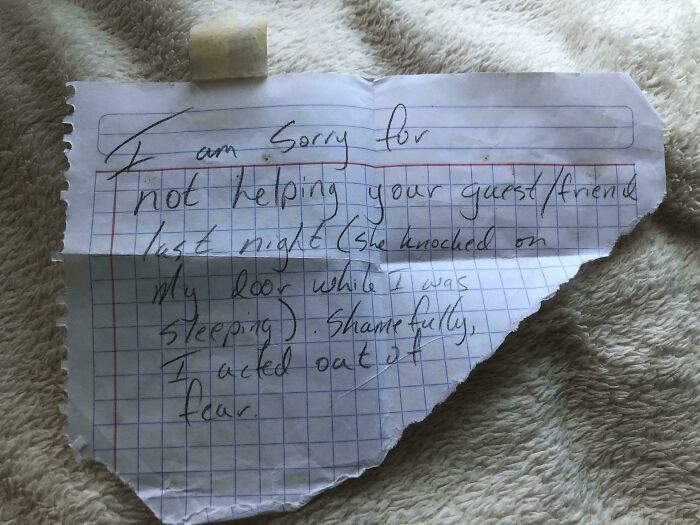 I am Sorry for
not helping your guest/friend
last night (she knocked on
My door while I was
sleeping). Shamefully,
I acted out of
fear.